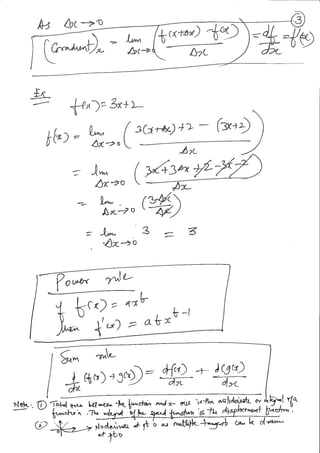 As Δx → 0
③
(Gradient)x = lim Δx→0 (f(x+Δx) - f(x) / Δx) = df/dx = f'(x)
Ex
f(x) = 3x+2
f(x) = lim Δx→0 (3(x+Δx)+2 - (3x+2) / Δx)
= lim Δx→0 (3x+3Δx+2-3x-2 / Δx)
= lim Δx→0 (3Δx / Δx)
= lim Δx→0 3 = 3
Power rule
if f(x) = axb
then f'(x) = abx b-1
Sum rule
d/dx (f(x) + g(x)) = df(x)/dx + dg(x)/dx
Note: ① Total area between the function and x-axis is the antiderivative or integral of a
function. The integral of the speed function is the displacement function.
② No derivative at pt 0 as multiple tangents can be drawn
at pt 0